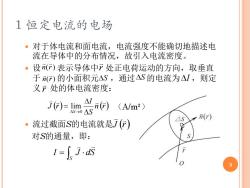 1 恒定电流的电场
• 对于体电流和面电流，电流强度不能确切地描述电
流在导体中的分布情况，故引入电流密度。
• 设n(r̄) 表示导体中r̄ 处正电荷运动的方向，取垂直
于 n(r̄) 的小面积元△S ，通过△S 的电流为△I ，则定
义 r̄ 处的体电流密度：
J̄(r̄) = lim ΔI/ΔS n̄(r̄) （A/m²）
ΔS→0
• 流过截面S的电流就是J̄(r̄)
对S的通量，即：
I = ∫s J̄ · dS̄
△S
n(r̄)
S
r̄
O
9